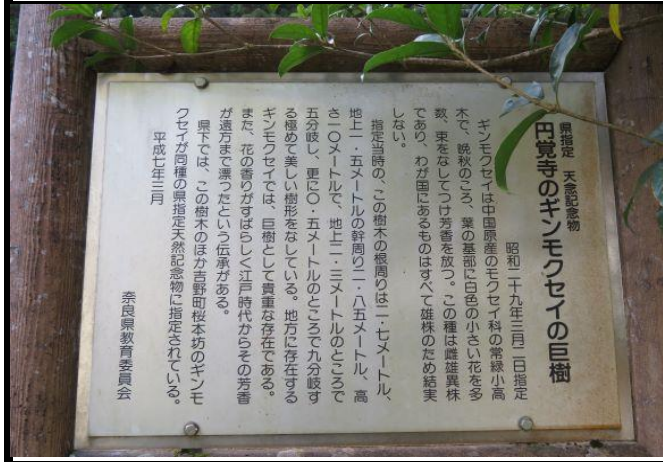 県指定　天念記念物
円覚寺のギンモクセイの巨樹
昭和二十九年三月二日指定
ギンモクセイは中国原産のモクセイ科の常緑小高
木で、晩秋のころ、葉の基部に白色の小さい花を多
数、束をなしてつけ芳香を放つ。この種は雌雄異株
であり、わが国にあるものはすべて雄株のため結実
しない。
指定当時の、この樹木の根周りは二・七メートル、
地上一・五メートルの幹周り二・八五メートル、高
さ一〇メートルで、地上二・三メートルのところで
五分岐し、更に〇・五メートルのところで九分岐す
る極めて美しい樹形をなしている。地方に存在する
ギンモクセイでは、巨樹として貴重な存在である。
また、花の香りがすばらしく江戸時代からその芳香
が遠方まで漂つたという伝承がある。
県下では、この樹木のほか吉野町桜本坊のギンモ
クセイが同種の県指定天然記念物に指定されている。
平成七年三月
奈良県教育委員会